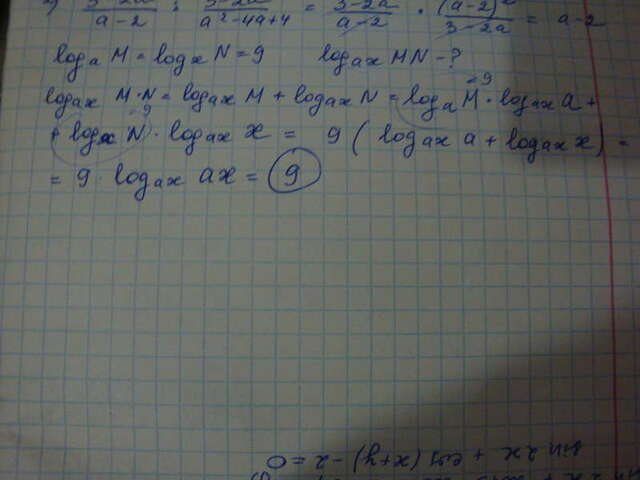 (3-2a)/(a-2) : (3-2a)/(a²-4a+4) = (3-2a)/(a-2) · (a-2)²/(3-2a) = a-2
logₐ M = logₓ N = 9 logₐₓ MN - ?
logₐₓ M·N = logₐₓ M + logₐₓ N = logₐ M · logₐₓ a + =9
+ logₓ N · logₐₓ x = 9 ( logₐₓ a + logₐₓ x) = =9
= 9 · logₐₓ ax = 9